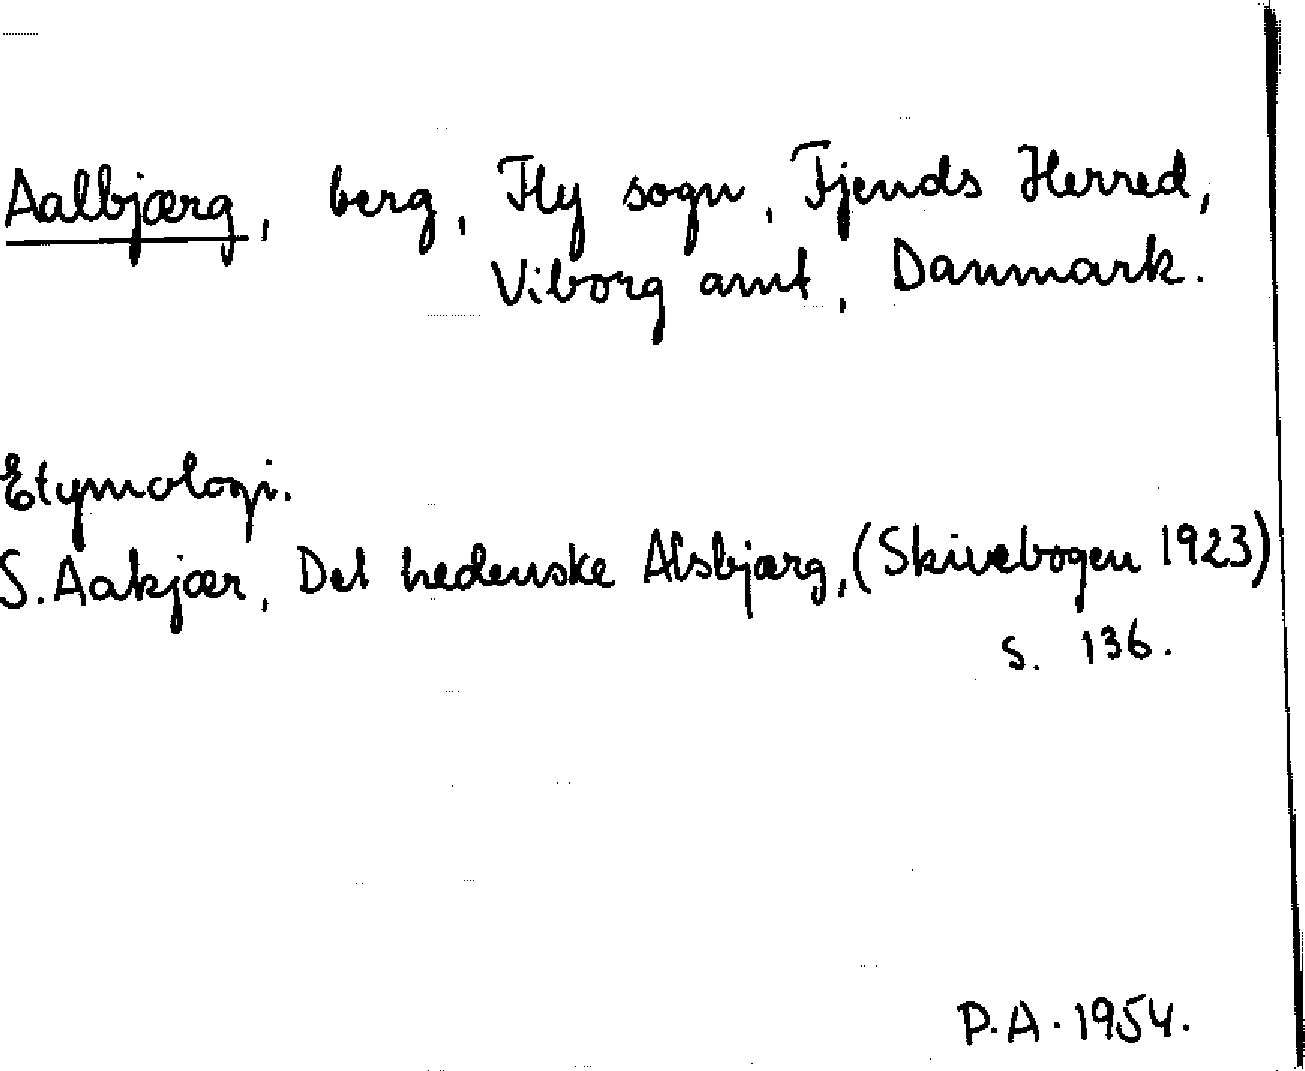 Aalbjærg, berg, Fly sogn, Fjends Herred,
Viborg amt, Danmark.
Etymologi.
S. Aakjær, Det hedenske Alsbjærg, (Skivebogen 1923)
s. 136.
P.A. 1954.